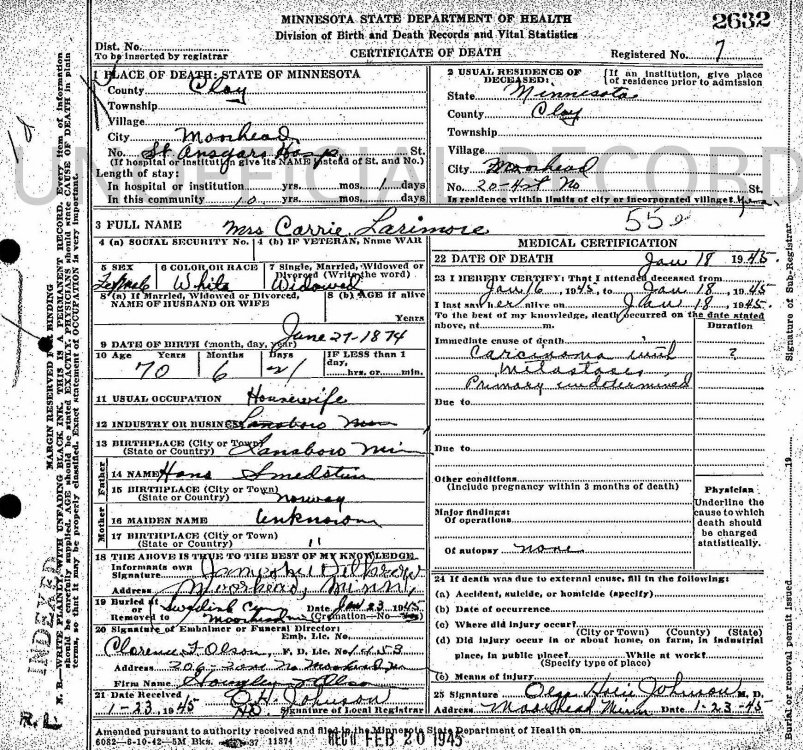 MINNESOTA STATE DEPARTMENT OF HEALTH
2632
Division of Birth and Death Records and Vital Statistics
Dist. No.
To be inserted by registrar
CERTIFICATE OF DEATH
Registered No. 7
1 PLACE OF DEATH: STATE OF MINNESOTA
County Clay
Township
Village
City Moorhead
No. St Ansgars Hosp St.
(If hospital or institution give its NAME instead of St. and No.)
Length of stay:
In hospital or institution yrs. mos. 1 days
In this community 10 yrs. mos. days
2 USUAL RESIDENCE OF DECEASED: (If an institution, give place of residence prior to admission
State Minnesota
County Clay
Township
Village
City Moorhead
No. 20-4st No St.
Is residence within limits of city or incorporated village?
UNOFFICIAL RECORD
3 FULL NAME Mrs Carrie Larimore
4 (a) SOCIAL SECURITY No. 4 (b) IF VETERAN, Name WAR
5 SEX Female
6 COLOR OR RACE White
7 Single, Married, Widowed or Divorced (Write the word) Widowed
8 (a) If Married, Widowed or Divorced, NAME OF HUSBAND OR WIFE
8 (b) AGE if alive
Years
9 DATE OF BIRTH (month, day, year) June 27-1874
10 Age Years Months Days IF LESS than 1 day,
70 6 21 hrs. or min.
11 USUAL OCCUPATION Housewife
12 INDUSTRY OR BUSINESS
13 BIRTHPLACE (City or Town) (State or Country) Lansboro Min
Father
14 NAME Hans
15 BIRTHPLACE (City or Town) (State or Country) Norway
Mother
16 MAIDEN NAME Unknown
17 BIRTHPLACE (City or Town) (State or Country) "
18 THE ABOVE IS TRUE TO THE BEST OF MY KNOWLEDGE
Informants own Signature
Address Moorhead, Minn,
19 Buried at or Removed to Swedish Cem Moorhead Date Jan 23 1945
(Cremation—No
20 Signature of Embalmer or Funeral Director:
Emb. Lic. No.
Clarence F Olson F. D. Lic. No. 1453
Address
Firm Name
21 Date Received
1-23, 1945 Johnson
Signature of Local Registrar
550
MEDICAL CERTIFICATION
22 DATE OF DEATH Jan 18 1945.
23 I HEREBY CERTIFY: That I attended deceased from
Jan 16, 1945, to Jan 18, 1945
I last saw her alive on Jan 18, 1945.
To the best of my knowledge, death occurred on the date stated above, at m.
Duration
Immediate cause of death ?
Carcinoma with
Metastases
Primary undetermined
Due to
Due to
Other conditions
(Include pregnancy within 3 months of death)
Major findings:
Of operations
Of autopsy none
Physician
Underline the cause to which death should be charged statistically.
24 If death was due to external cause, fill in the following:
(a) Accident, suicide, or homicide (specify)
(b) Date of occurrence
(c) Where did injury occur?
(City or Town) (County) (State)
(d) Did injury occur in or about home, on farm, in industrial place, in public place? While at work?
(Specify type of place)
(e) Means of injury
25 Signature Johnson M. D.
Address Moorhead Minn Date 1-23-45
Amended pursuant to authority received and filed in the Minnesota State Department of Health on
6082—8-10-42—5M Bks. 37 11874
REC'D FEB 20 1945
MARGIN RESERVED FOR BINDING
N. B.—WRITE PLAINLY, WITH UNFADING BLACK INK. THIS IS A PERMANENT RECORD. Every item of information should be carefully supplied. AGE should be stated EXACTLY. PHYSICIANS should state CAUSE OF DEATH in plain terms, so that it may be properly classified. Exact statement of OCCUPATION is very important.
INDEXED
R.L.
Burial or removal permit issued 19
Signature of Sub-Registrar